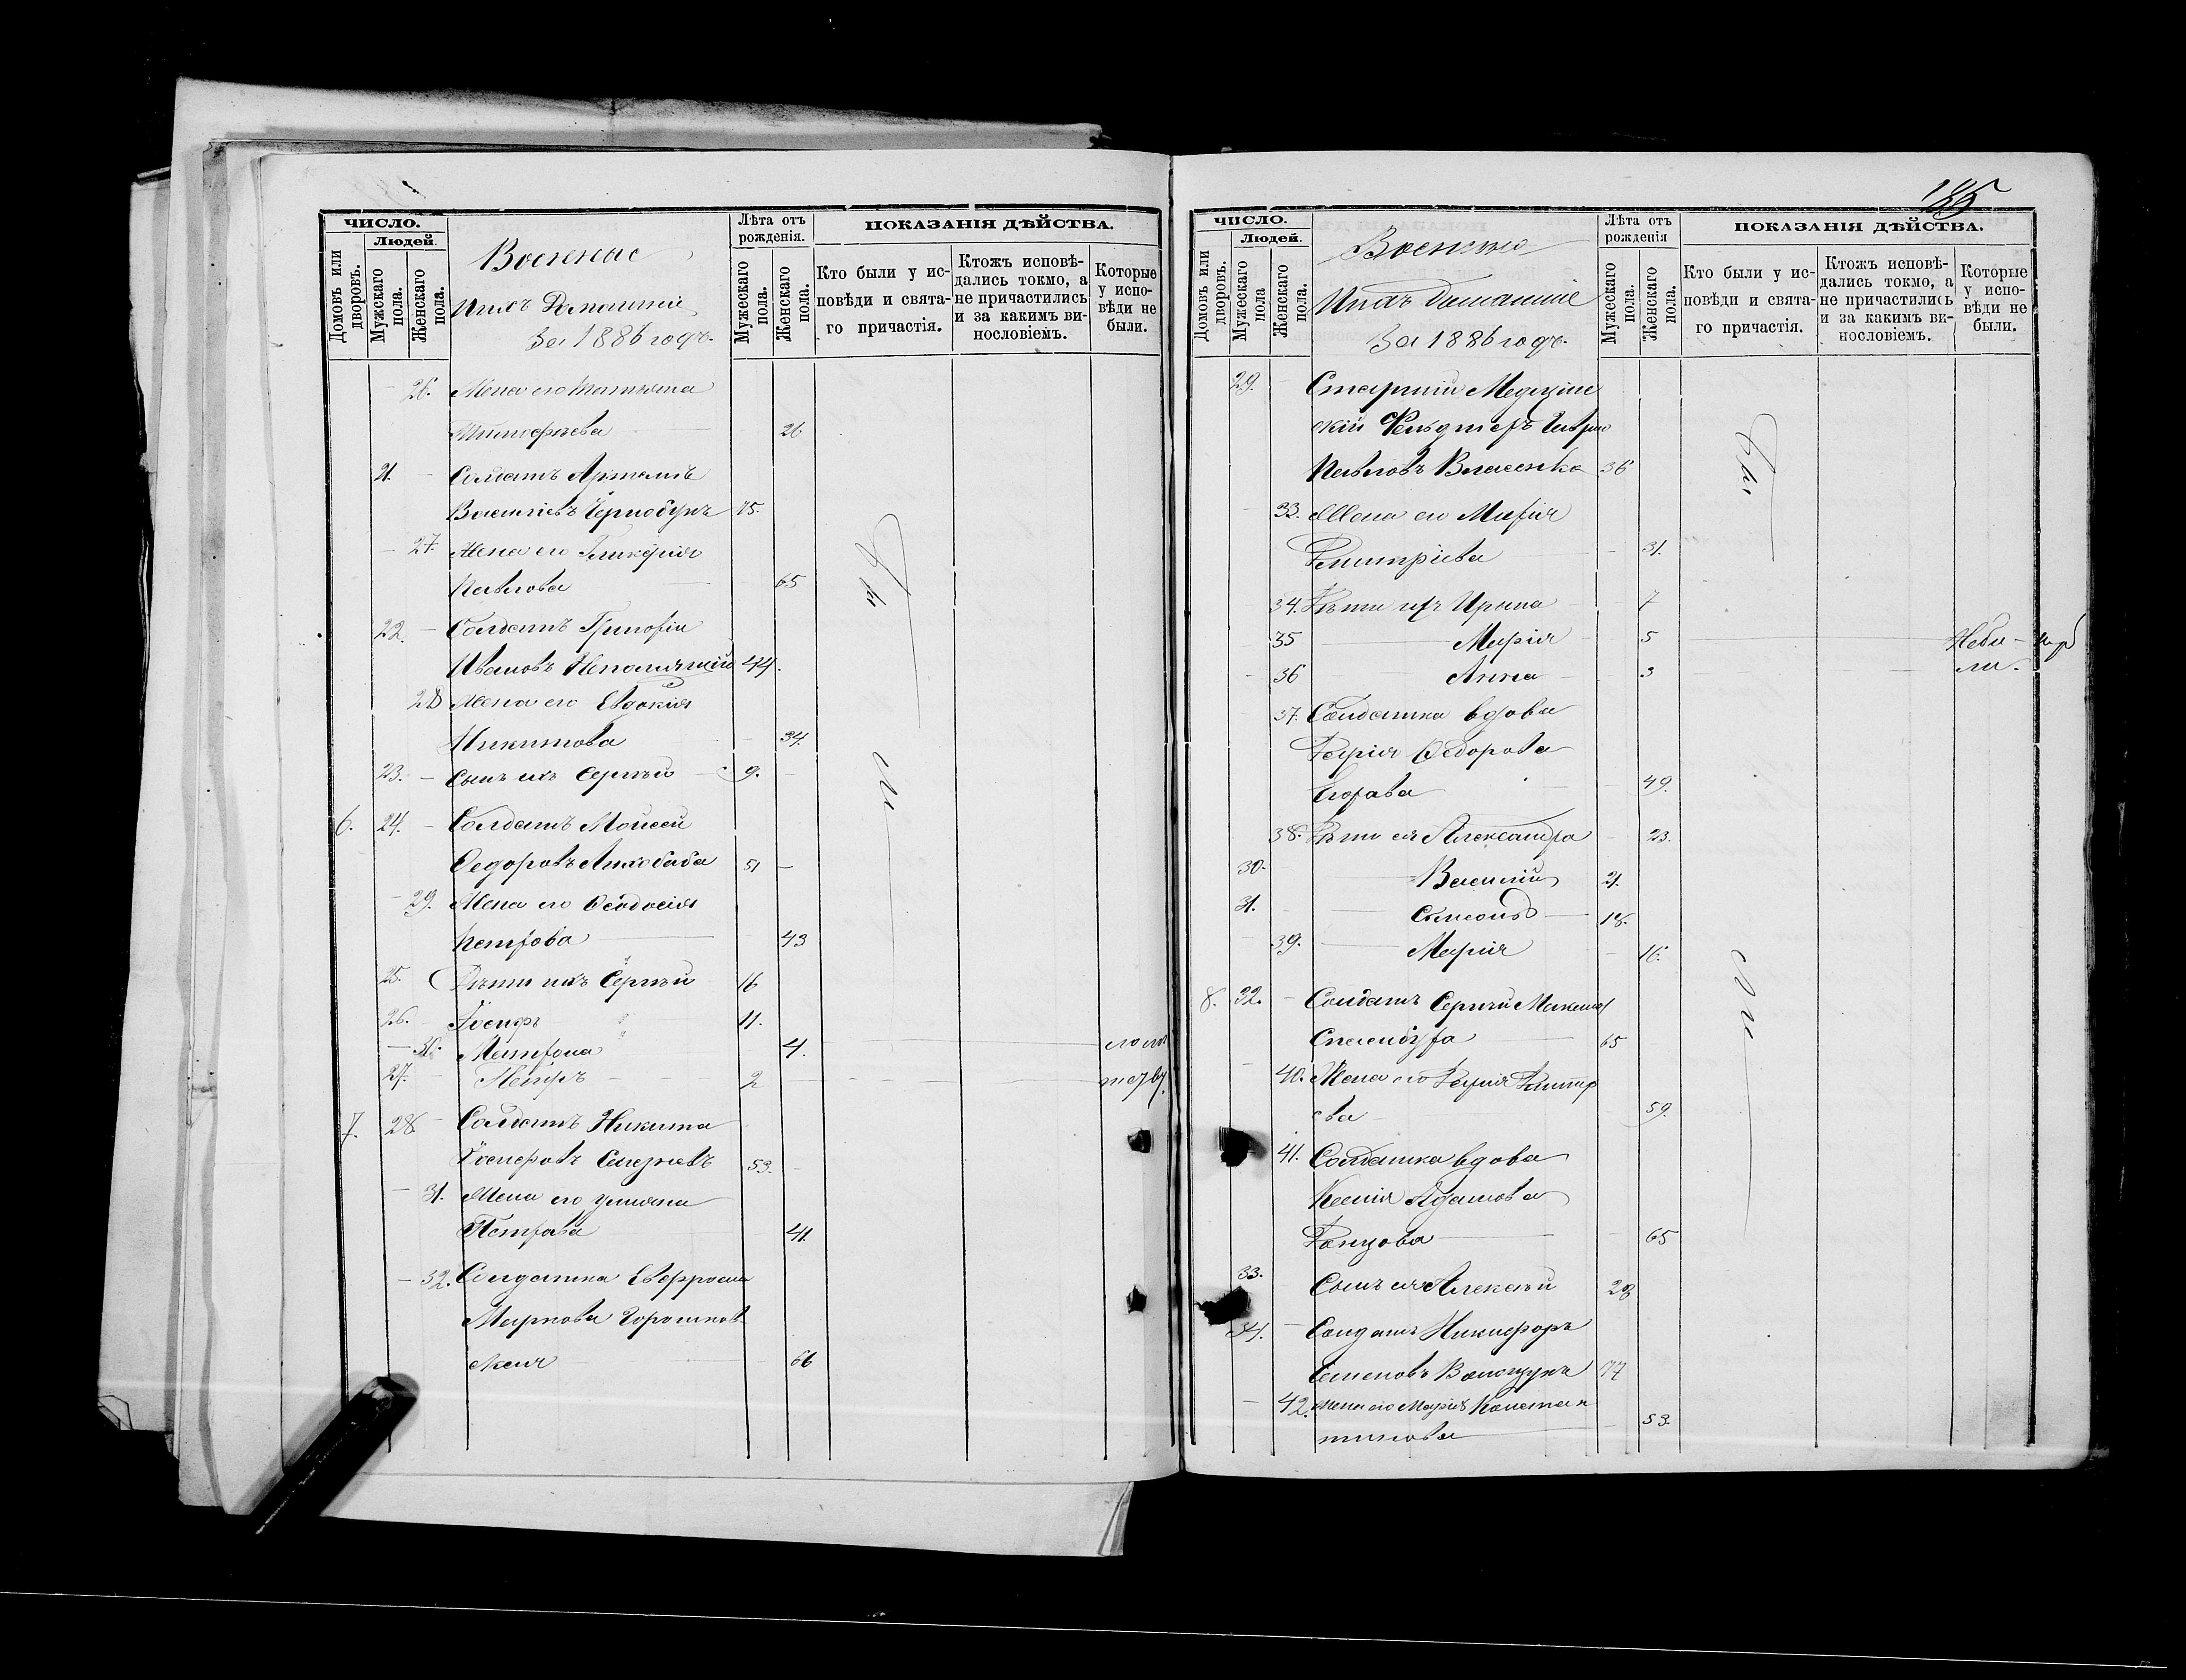 ЧИСЛО.
Людей.
Домовъ или дворовъ.
Мужескаго пола.
Женскаго пола.
Военные
ихъ Домашніе
За 1886 годъ.
Лѣта отъ рожденія.
Мужескаго пола.
Женскаго пола.
ПОКАЗАНІЯ ДѢЙСТВА.
Кто были у ис-
повѣди и свята-
го причастія.
Ктожъ исповѣ-
дались токмо, а
не причастились
и за какимъ ви-
нословіемъ.
Которые
у испо-
вѣди не
были.
26. Жена его Татьяна
26
21. Солдатъ
75.
27. Жена его Гликерія
Павлова 65
22. Солдатъ Григорій
Ивановъ 44.
28 Жена его Евдокія
Никитова 34.
23. Сынъ ихъ Сергѣй 9.
6. 24. Солдатъ Моисей
Ѳедоровъ Лихобаба 51
29. Жена его Ѳеодосія
Петрова 43
25. Дѣти ихъ Сергѣй 16
26. Іосифъ 11.
30. Матрона 4.
27. Петръ 2
7. 28. Солдатъ Никита
Іосифовъ 53.
31. Жена его Ульяна
Петрова 41.
32. Солдатка Евфросин
Маркова Горошков
ская 66
Бы
ли
185
ЧИСЛО.
Людей.
Домовъ или дворовъ.
Мужескаго пола
Женскаго пола.
Военные
ихъ Домашніе
За 1886 годъ.
Лѣта отъ рожденія
Мужескаго пола.
Женскаго пола.
ПОКАЗАНІЯ ДѢЙСТВА.
Кто были у ис-
повѣди и свята-
го причастія.
Ктожъ исповѣ-
дались токмо, а
не причастились
и за какимъ ви-
нословіемъ.
Которые
у испо-
вѣди не
были.
29. Старшій Медицин
скій Фельдшеръ
Павловъ Власенко 36
33. Жена его Марія
Димитріева 31.
34. Дѣти ихъ Ирина 7
35 Марія 5 Небы-
36 Анна 3 ли.
37. Солдатка вдова
Дарія Ѳедорова
Егорова 49.
38. Дѣти ея Александра 23.
30. Василій 21.
31. Симеонъ 18.
39. Марія 16.
8. 32. Солдатъ Сергѣй Максимов
65
40. Жена его Дарія Димитр
ева 59.
41. Солдатка вдова
Ксенія Адамова
65
33. Сынъ ея Алексѣй 28
34. Солдатъ Никифоръ
Семеновъ 77
42. Жена его Марія Констан
тинова 53.
Бы
ли